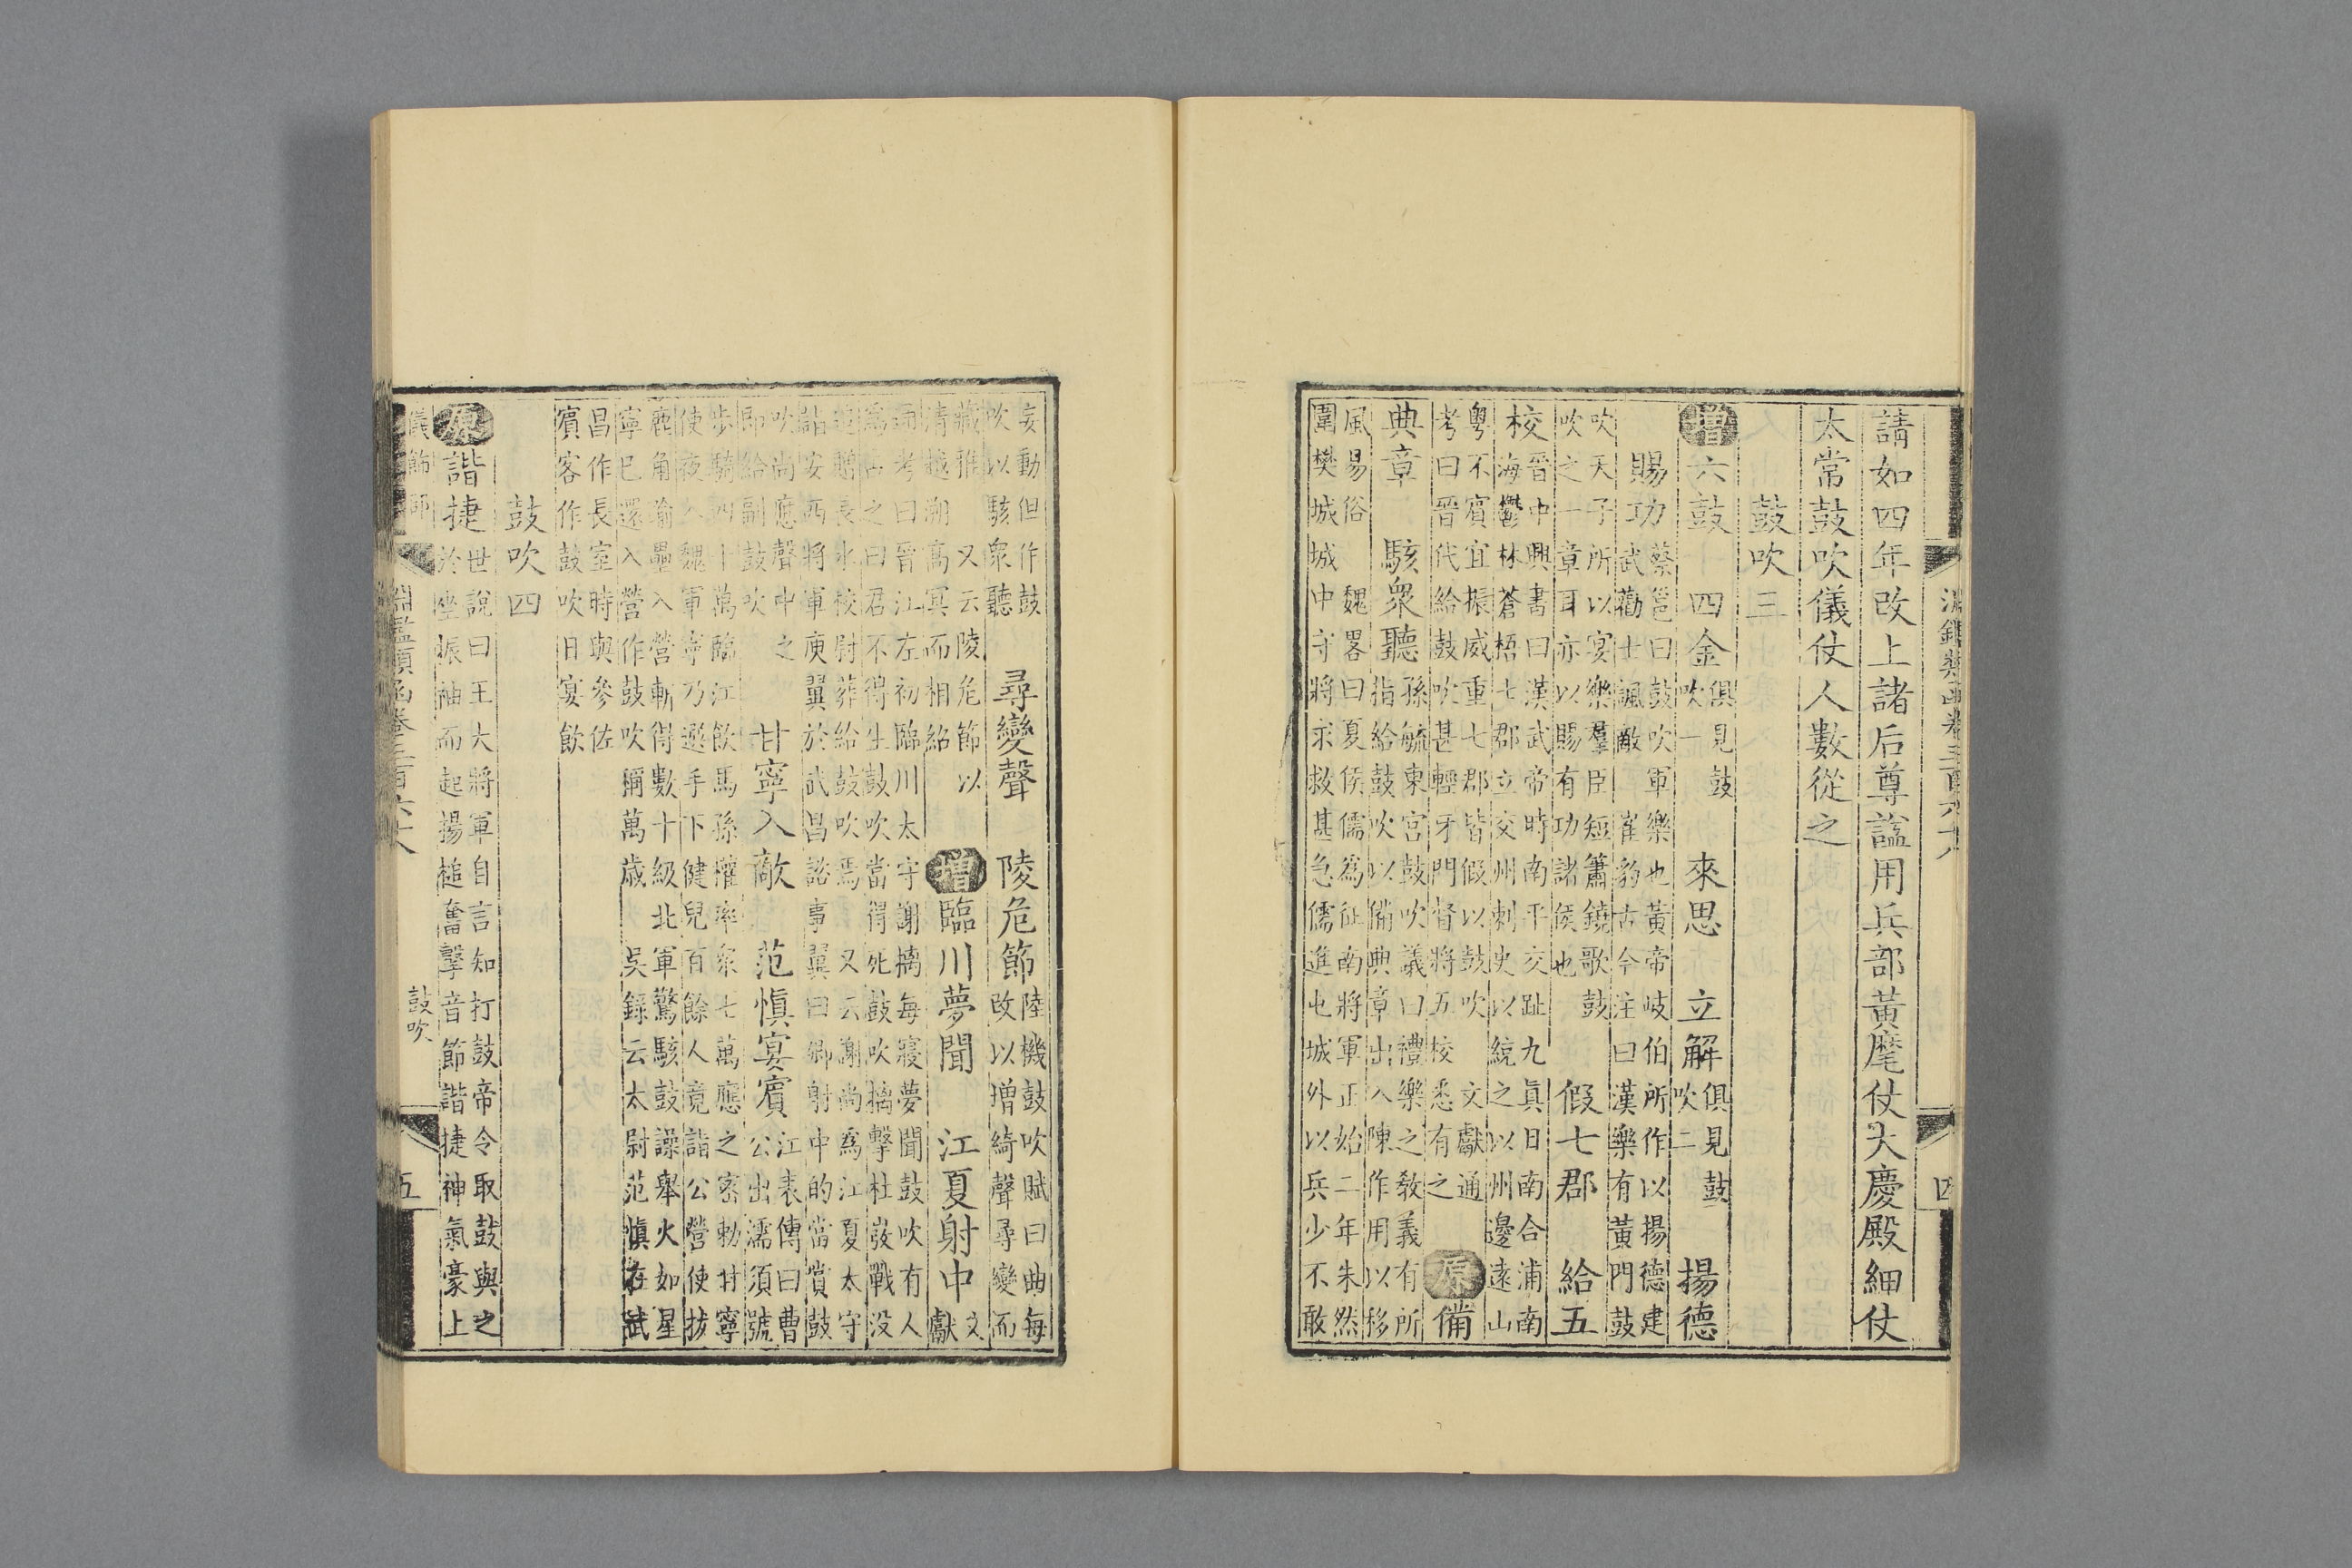 淵鑑類函卷三百六十八 四
請如四年改上諸后尊諡用兵部黃麾仗大慶殿細仗
太常鼓吹儀仗人數從之
鼓吹三
增六鼓 四金俱見鼓吹一 來思 立解俱見鼓吹二 揚德
賜功蔡邕曰鼓吹軍樂也黃帝岐伯所作以揚德建武勸士諷敵 崔豹古今注曰漢樂有黃門鼓
吹天子所以宴樂羣臣短簫鐃歌鼓吹之一章耳亦以賜有功諸侯也 假七郡 給五
校晉中興書曰漢武帝時南平交趾九真日南合浦南海鬱林蒼梧七郡立交州刺史以統之以州邊遠山
粵不賓宜振威重七郡皆假以鼓吹 文獻通考曰晉代給鼓吹甚輕牙門督將五校悉有之 原備
典章 駭衆聽孫毓東宮鼓吹議曰禮樂之教義有所指給鼓吹以備典章出入陳作用以移
風易俗 魏畧曰夏侯儒為征南將軍正始二年朱然圍樊城城中守將求救甚急儒進屯城外以兵少不敢
妄動但作鼓吹以駭衆聽 尋變聲 陵危節陸機鼓吹賦曰曲每改以增綺聲尋變而
藏雅 又云陵危節以清越溯高冥而相紹 增臨川夢聞 江夏射中文獻
通考曰晉江左初臨川太守謝摛每寢夢聞鼓吹有人為占之曰君不得生鼓吹當得死鼓吹摛擊杜弢戰没
追贈長水校尉葬給鼓吹焉 又云謝尚為江夏太守詣安西將軍庾翼於武昌諮事翼曰卿射中的當賞鼓
吹尚應聲中之即給副鼓吹 甘寧入敵 范愼宴賓江表傳曰曹公出濡須號
步騎四十萬臨江飲馬孫權率衆七萬應之密勅甘寧使夜入魏軍寧乃選手下健兒百餘人竟詣公營使拔
鹿角踰壘入營斬得數十級北軍驚駭鼓譟舉火如星寧已還入營作鼓吹稱萬歲 吳錄云太尉范愼在武
昌作長室時與參佐賓客作鼓吹日宴飲
鼓吹四
原諧捷世說曰王大將軍自言知打鼓帝令取鼓與之於坐振袖而起揚槌奮擊音節諧捷神氣豪上
淵鑑類函卷三百六十八 鼓吹 五